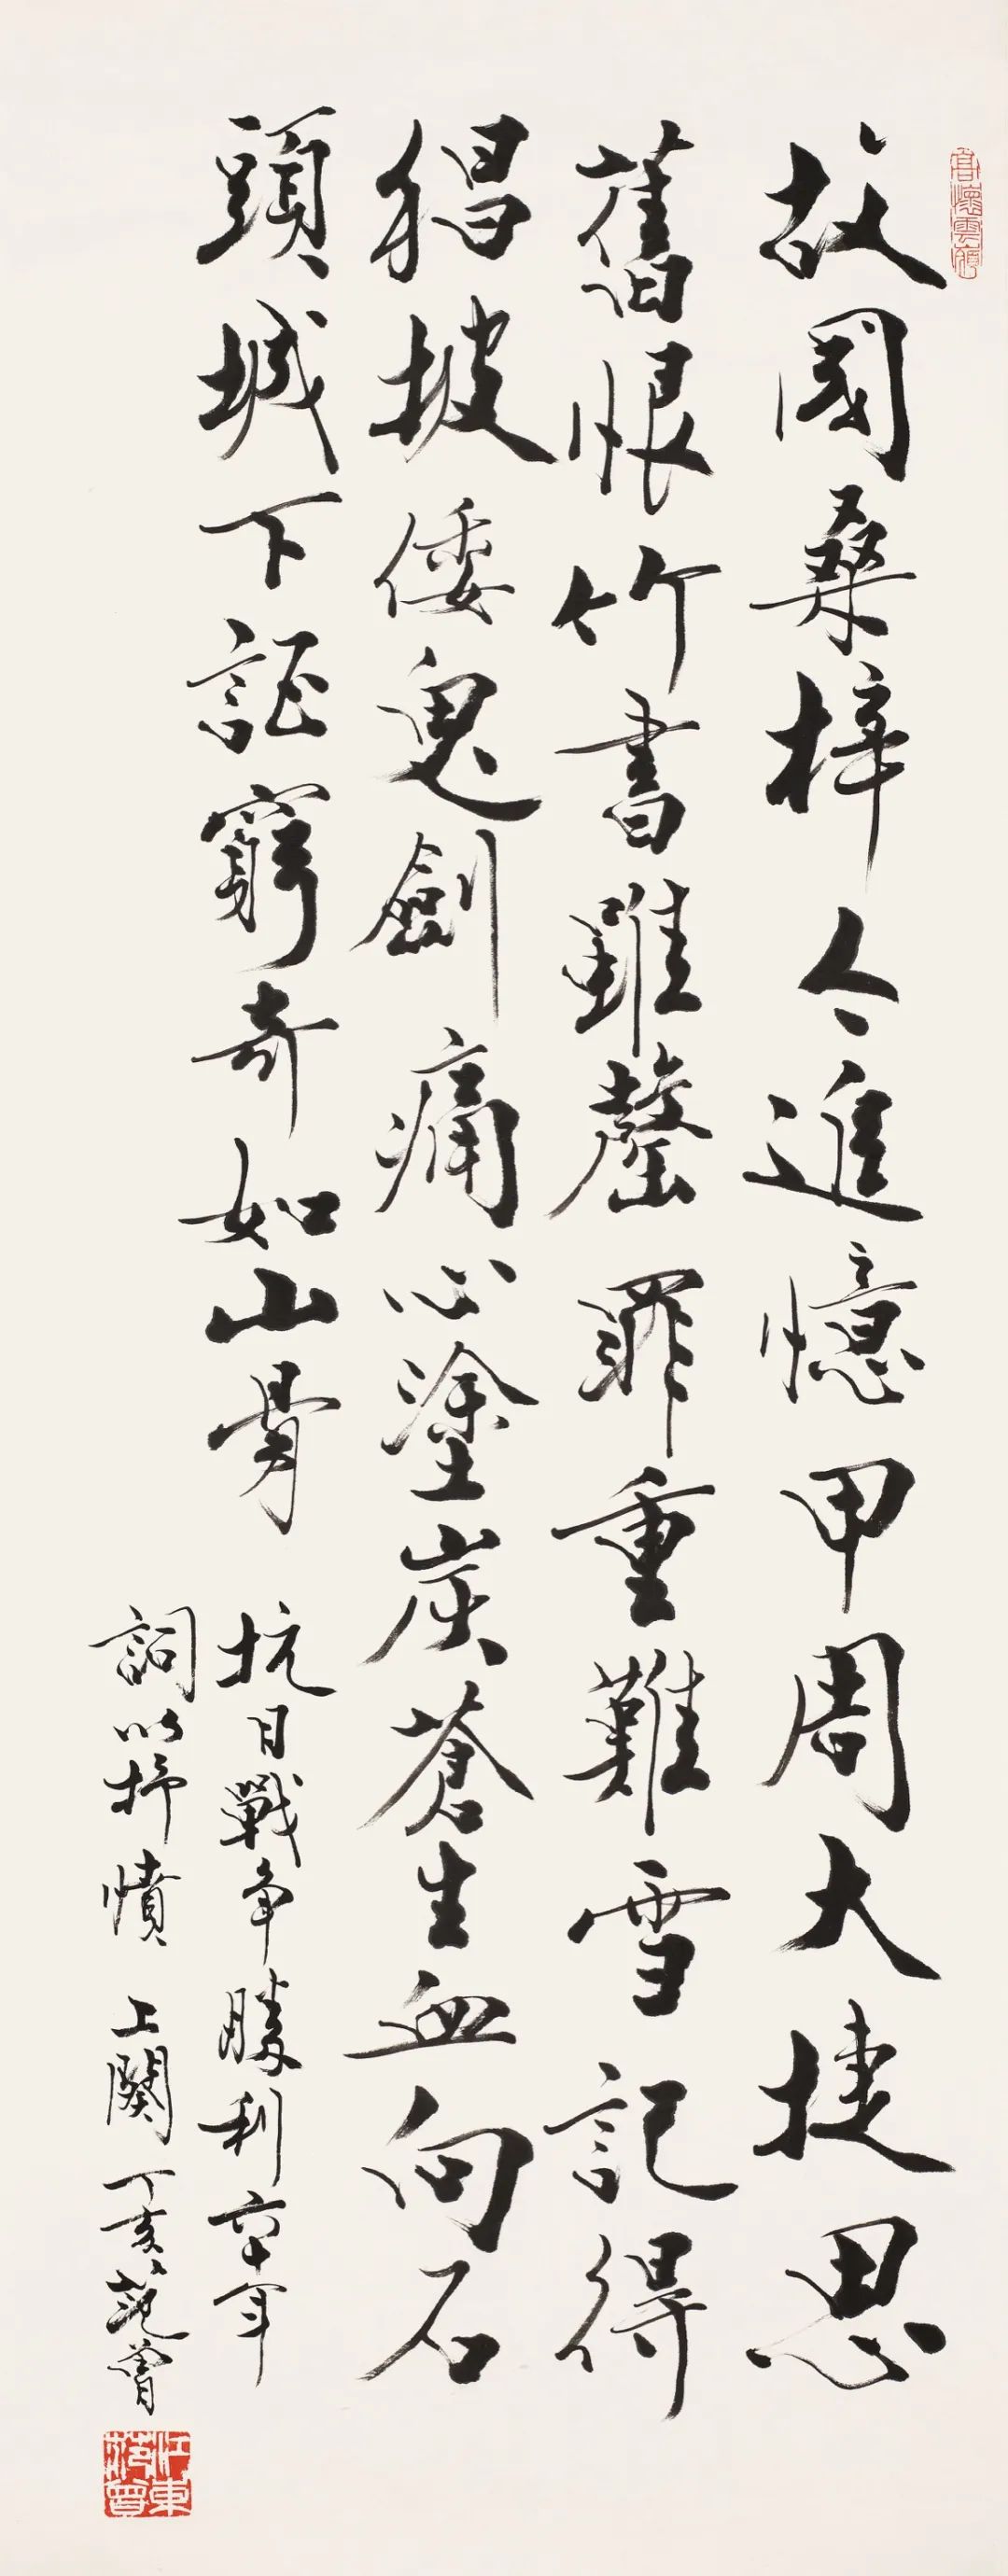 故國桑梓今進憶甲周大捷思
舊恨竹書雖罄罪重難雪記得
猖披倭鬼劍痛心塗炭蒼生血向石
頭城下証窮奇如山骨
抗日戰争勝利六十年
詞以抒憤 上闋 丁亥 范曾
江東范曾